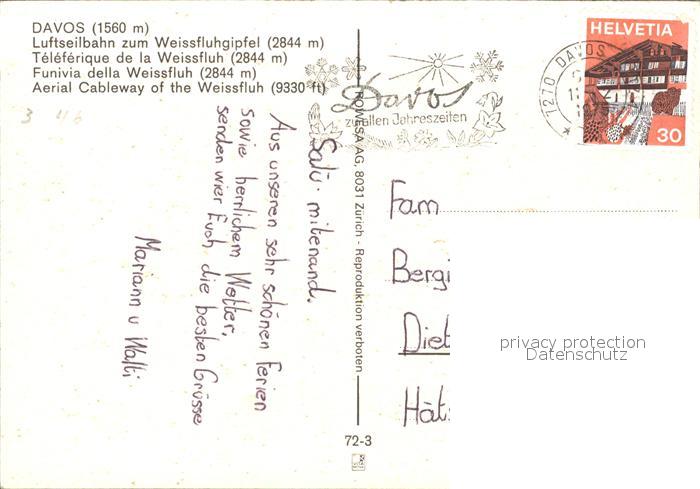 DAVOS (1560 m)
Luftseilbahn zum Weissfluhgipfel (2844 m)
Téléférique de la Weissfluh (2844 m)
Funivia della Weissfluh (2844 m)
Aerial Cableway of the Weissfluh (9330 ft)
HELVETIA
30
7270 DAVOS
Davos
zu allen Jahreszeiten
Salü mitenand.
Aus unseren sehr schönen Ferien
Sowie herrlichem Wetter,
senden wier Euch die besten Grüsse
Mariann u Walti
ROWESA AG, 8031 Zürich - Reproduktion verboten
Fam
Bergi
Diet
Hät
privacy protection
Datenschutz
72-3